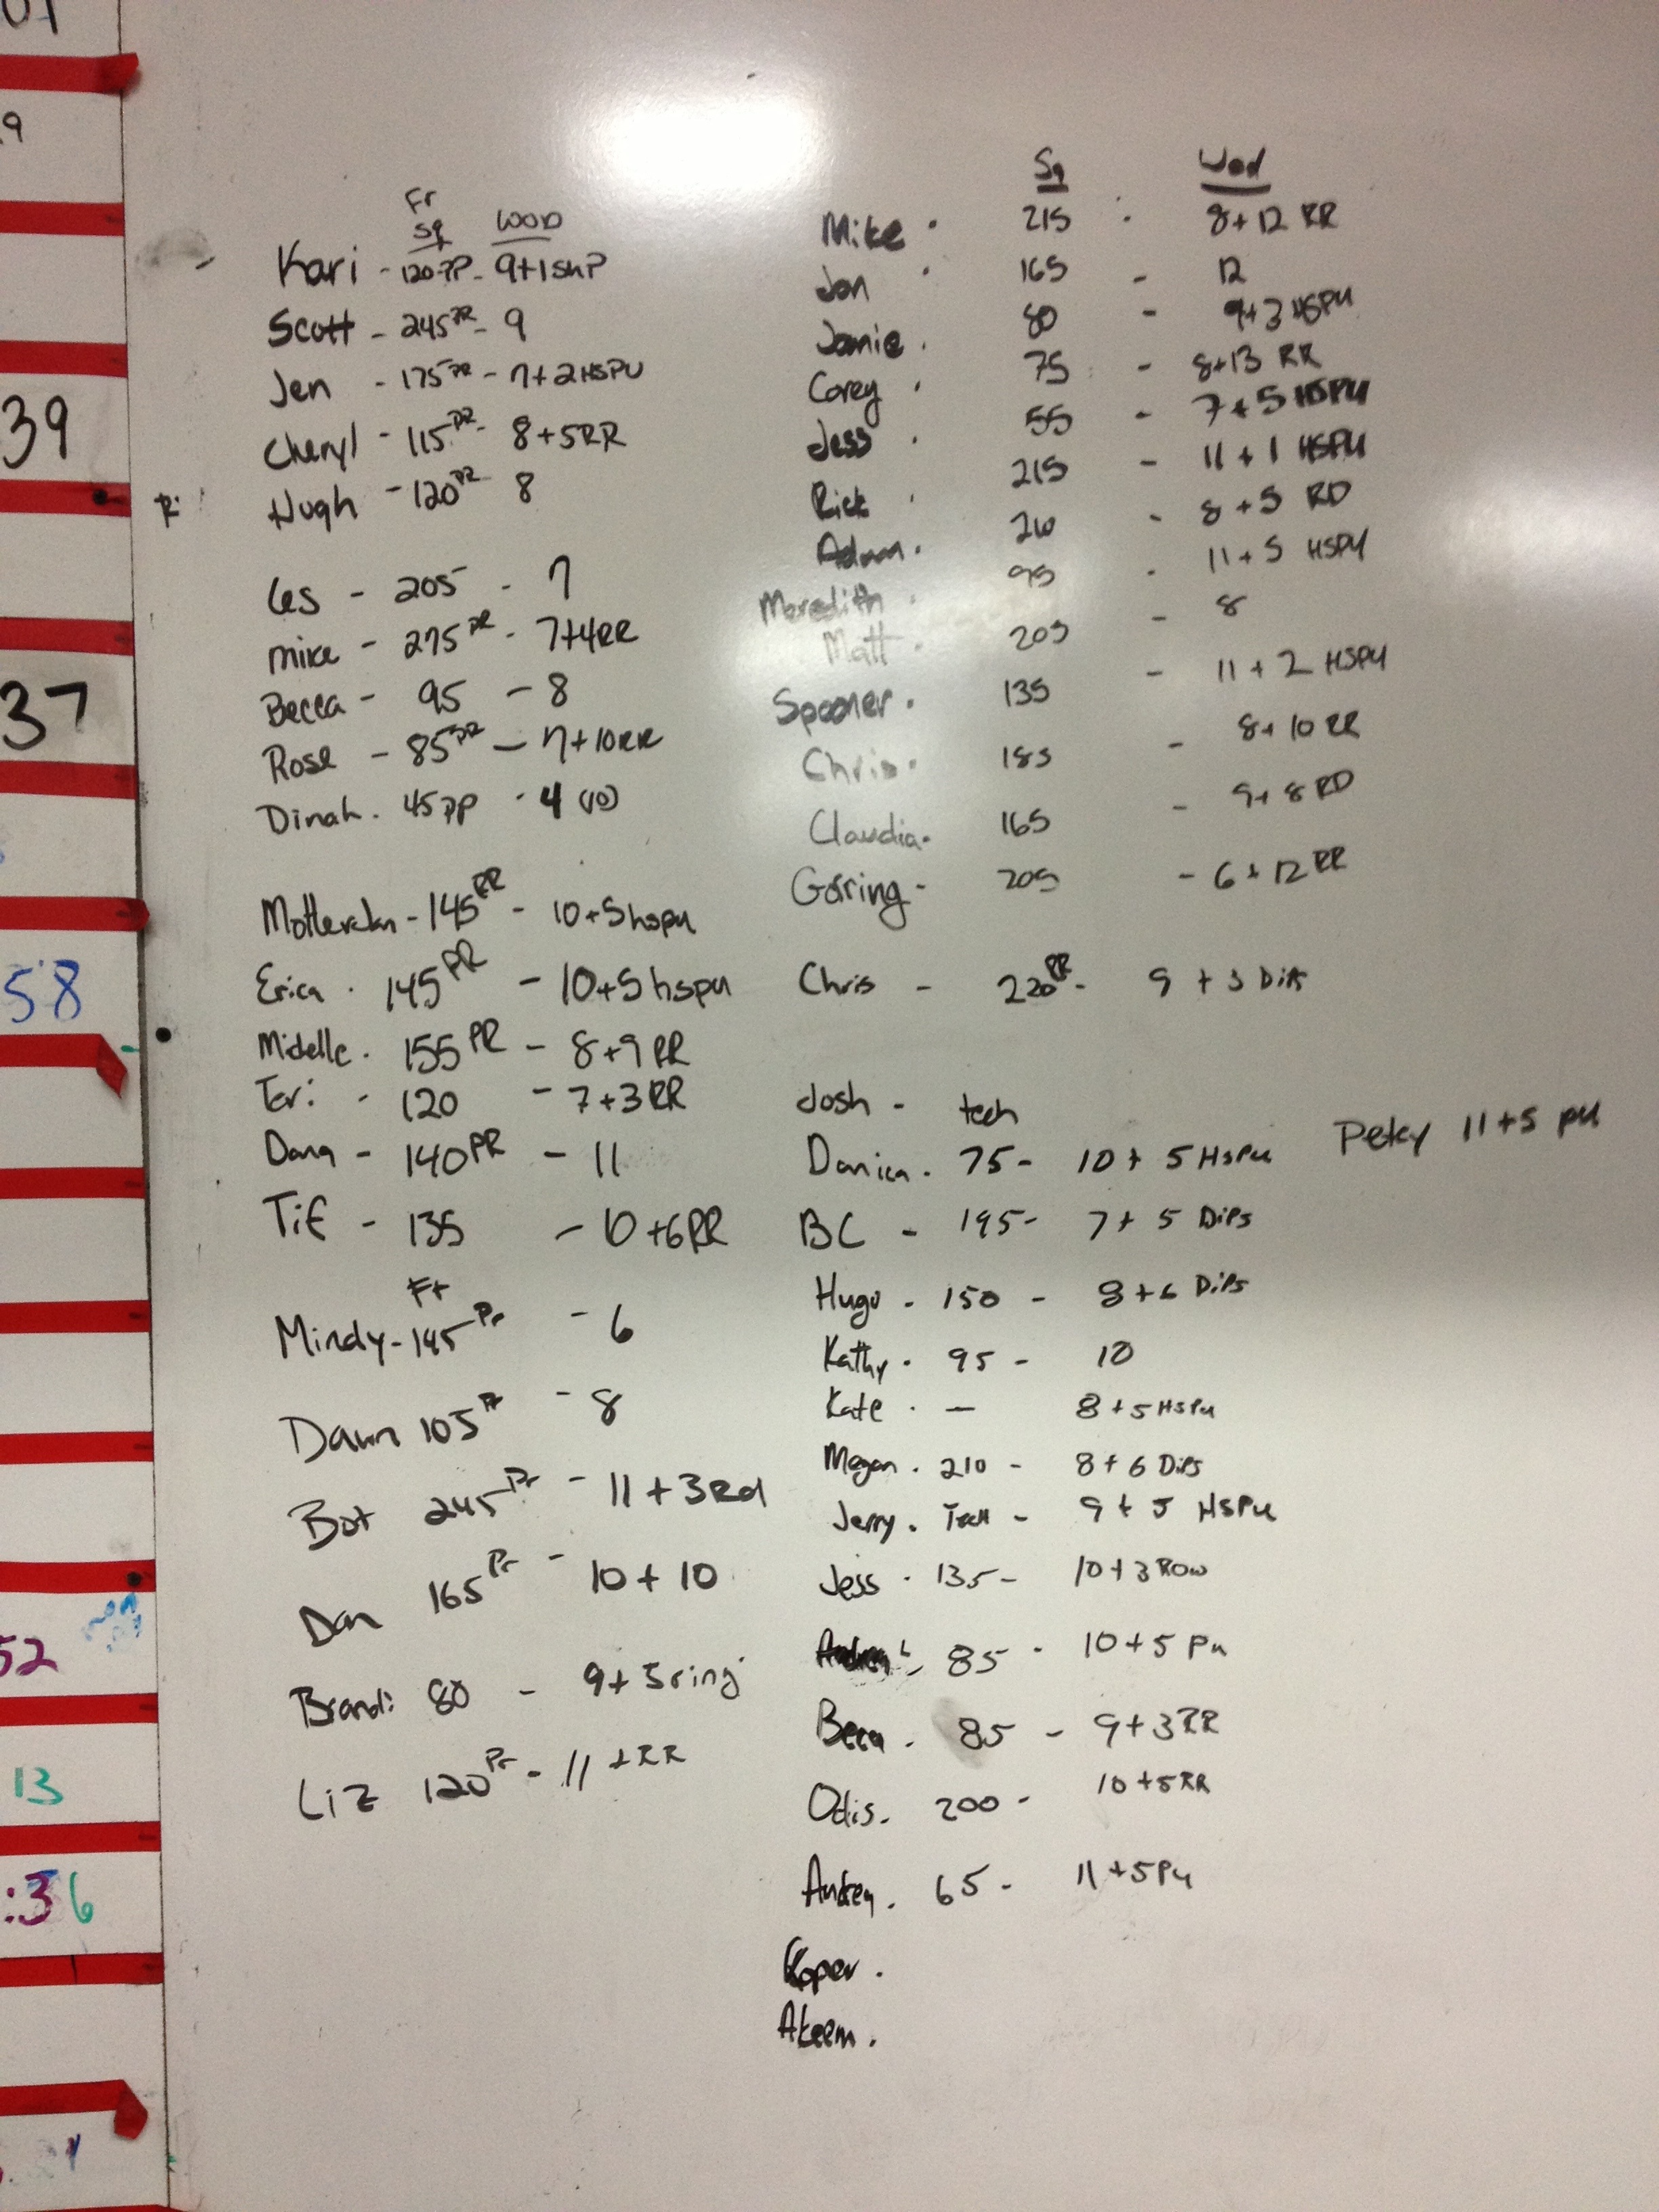 Fr
Sq WOD
Kari - 120 PP - 9+1 ShP
Scott - 245 PR - 9
Jen - 175 PR - 7+2HSPU
Cheryl - 115 PR - 8+5RR
Hugh - 120 PR 8
Les - 205 - 7
Mike - 275 PR - 7+4RR
Becca - 95 - 8
Rose - 85 PR - 7+10RR
Dinah. 45 PP - 4 (10)
- 145 PR - 10+5hspu
Erica . 145 PR - 10+5hspu
Michelle. 155 PR - 8+9RR
Tori - 120 - 7+3RR
Dana - 140 PR - 11
Tif - 135 - 10+6RR
Fr
Mindy - 145 Pr - 6
Dawn 105 Pr - 8
Bot 245 Pr - 11+3Rd
Dan 165 Pr - 10+10
Brandi 80 - 9+5ring
Liz 120 Pr - 11 +RR
Sq Wod
Mike . 215 . 8+12 RR
Jon . 165 - 12
Jamie . 80 - 9+3 HSPU
Corey . 75 - 8+13 RR
Jess . 55 - 7+5 HSPU
Rick . 215 - 11+1 HSPU
Adam . - 8+5 RD
Meredith . 95 . 11+5 HSPU
Matt . 205 - 8
Spooner . 135 - 11+2 HSPU
Chris . 185 - 8+10 RR
Claudia . 165 - 9+8 RD
Goring - 205 - 6+12 RR
Chris - 220 PR - 9+3 Dips
Josh - tech
Danica . 75 - 10+5 HSPu
Petey 11+5 pu
BC - 195 - 7+5 Dips
Hugo - 150 - 8+6 Dips
Kathy . 95 - 10
Kate . — 8+5 HSPu
Megan . 210 - 8+6 Dips
Jerry . Tech - 9+5 HSPu
Jess . 135 - 10+3 Row
85 - 10+5 Pu
Becca . 85 - 9+3RR
Odis . 200 - 10+5RR
65 - 11+5Pu
Koper .
Akeem .
39
37
58
52
13
:36